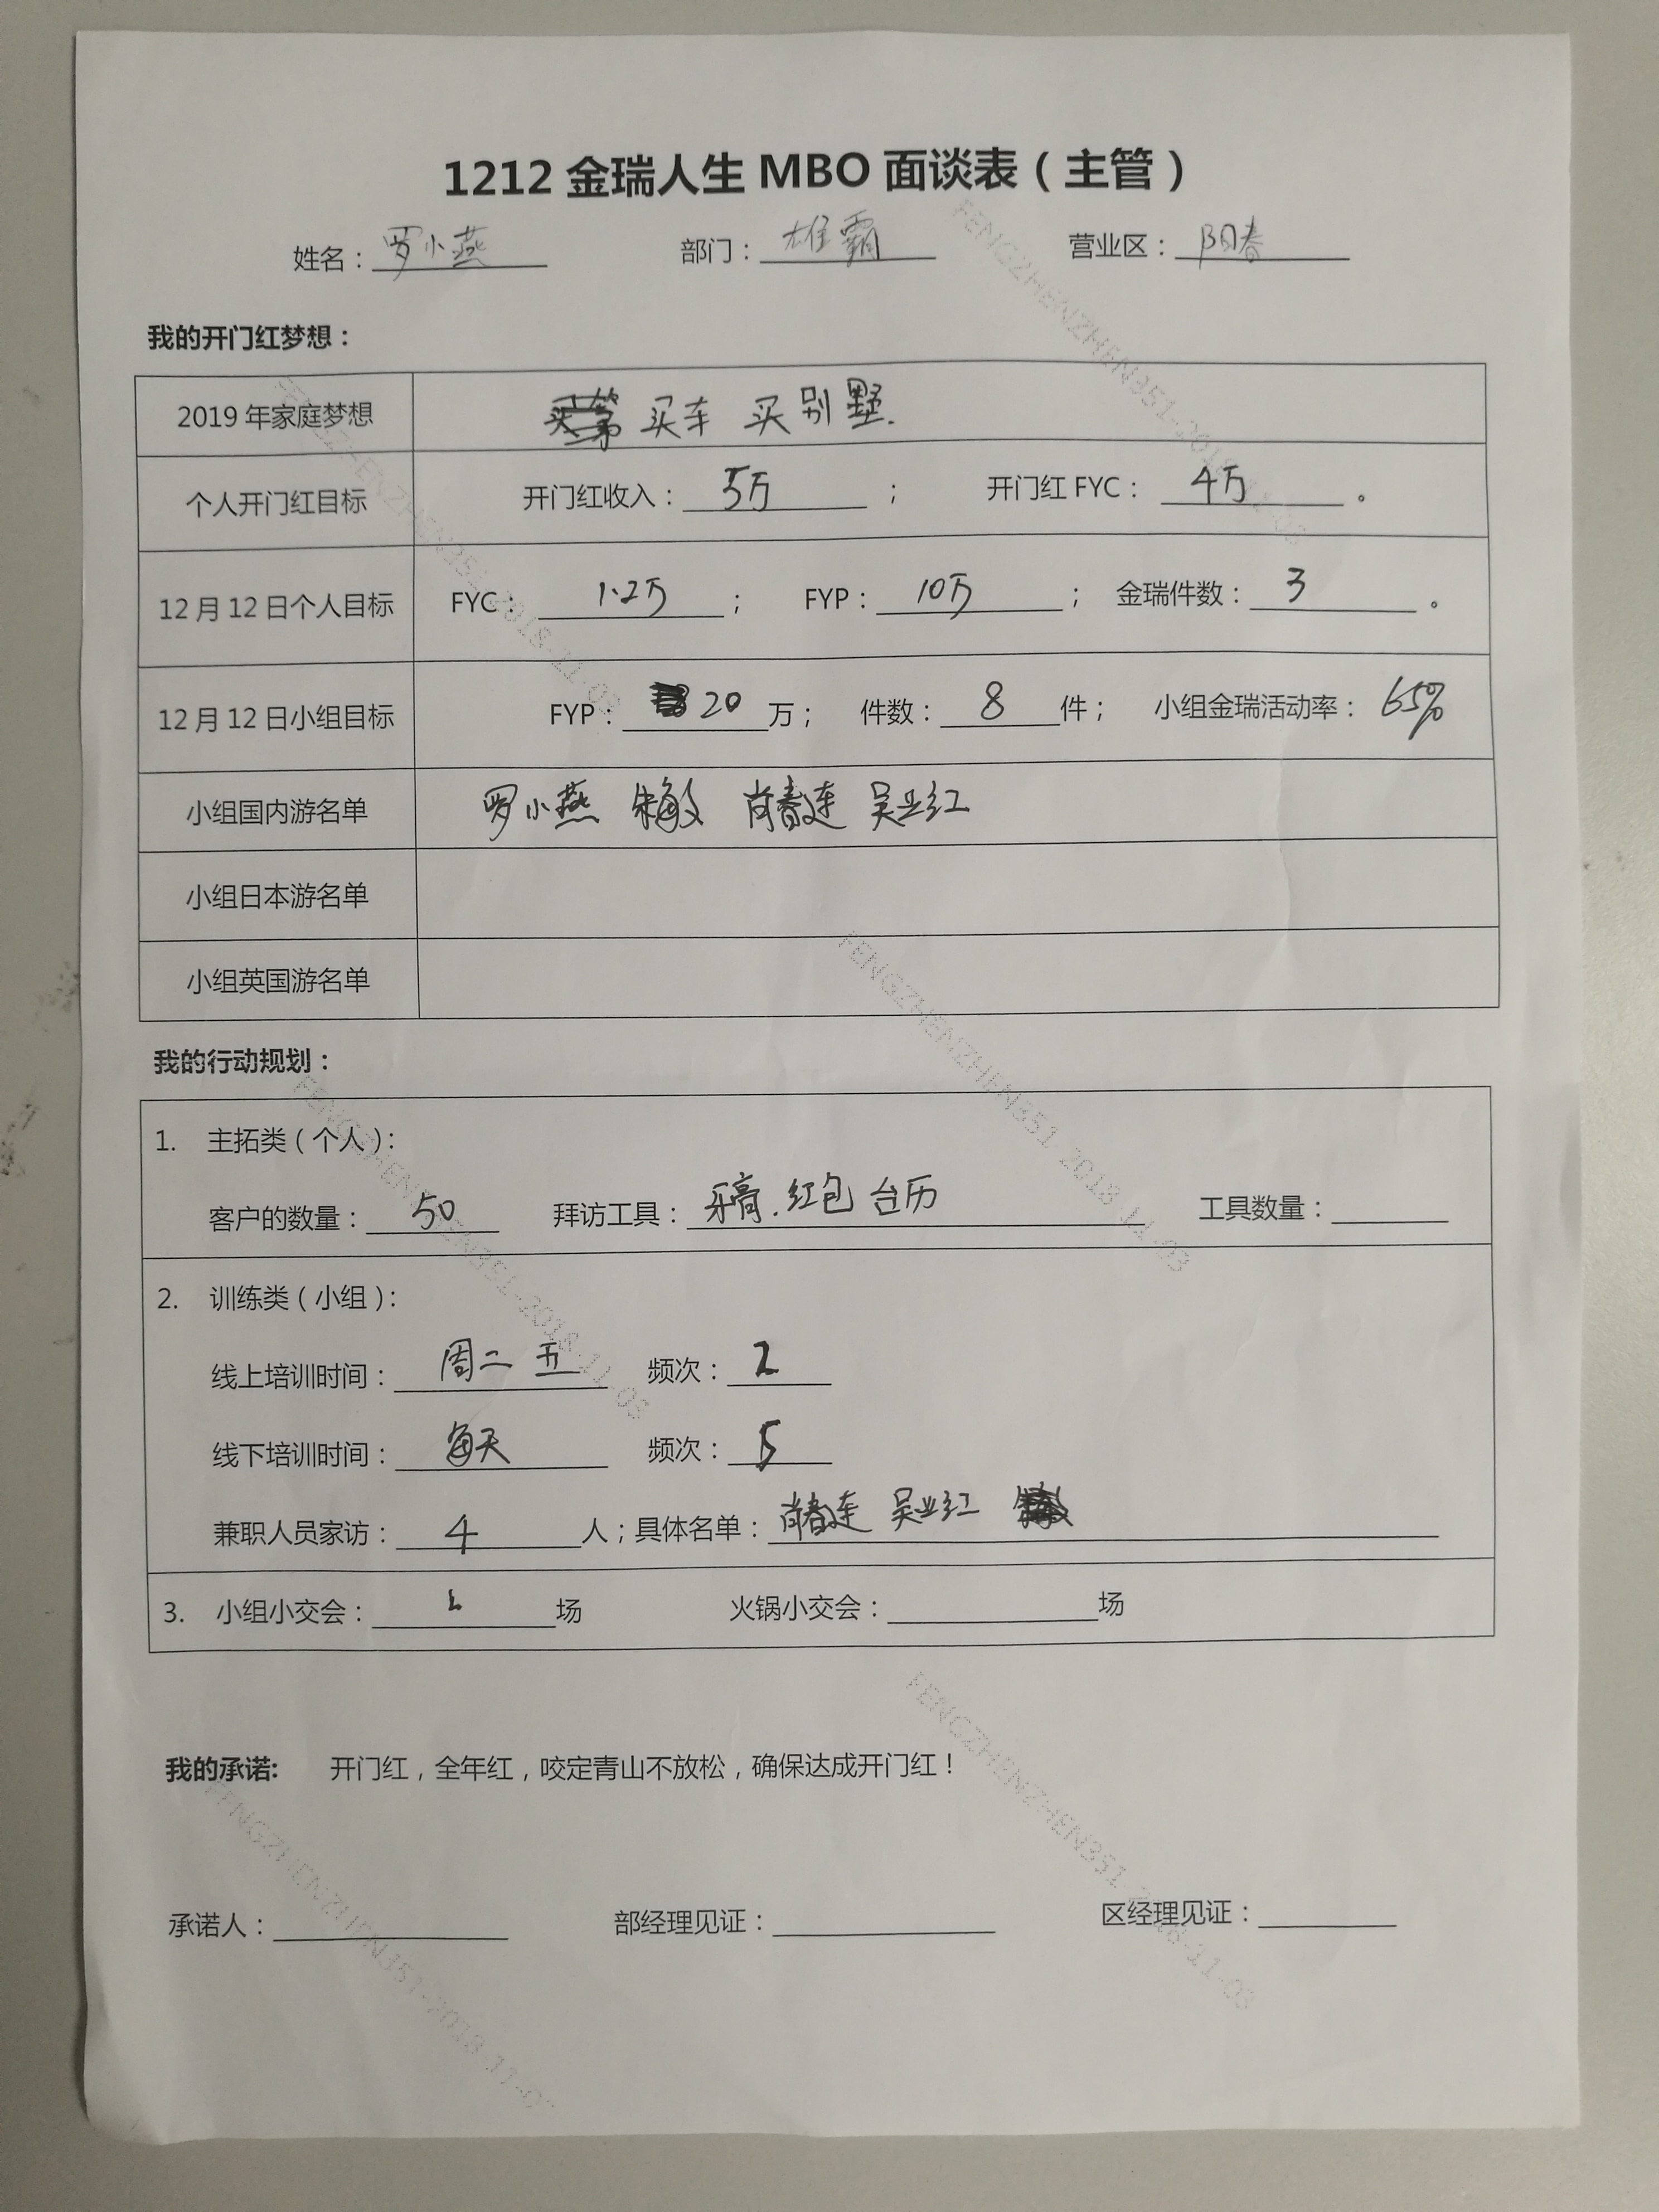 1212 金瑞人生 MBO 面谈表（主管）
姓名：罗小燕 部门：雄霸 营业区：阳春
我的开门红梦想：
2019 年家庭梦想 买车 买别墅.
个人开门红目标 开门红收入：5万； 开门红 FYC：4万。
12 月 12 日个人目标 FYC：1.2万； FYP：10万； 金瑞件数：3。
12 月 12 日小组目标 FYP：20万； 件数：8件； 小组金瑞活动率：65%
小组国内游名单 罗小燕 朱敏 肖春连 吴业红
小组日本游名单
小组英国游名单
我的行动规划：
1. 主拓类（个人）：
客户的数量：50 拜访工具：牙膏.红包 台历 工具数量：
2. 训练类（小组）：
线上培训时间：周二 五 频次：2
线下培训时间：每天 频次：5
兼职人员家访：4人；具体名单：肖春连 吴业红
3. 小组小交会： 场 火锅小交会： 场
我的承诺: 开门红，全年红，咬定青山不放松，确保达成开门红！
承诺人： 部经理见证： 区经理见证：
FENGZHENZHEN351-2018-11-03
FENGZHENZHEN351-2018-11-03
FENGZHENZHEN351-2018-11-03
FENGZHENZHEN351-2018-11-03
FENGZHENZHEN351-2018-11-03
FENGZHENZHEN351-2018-11-03